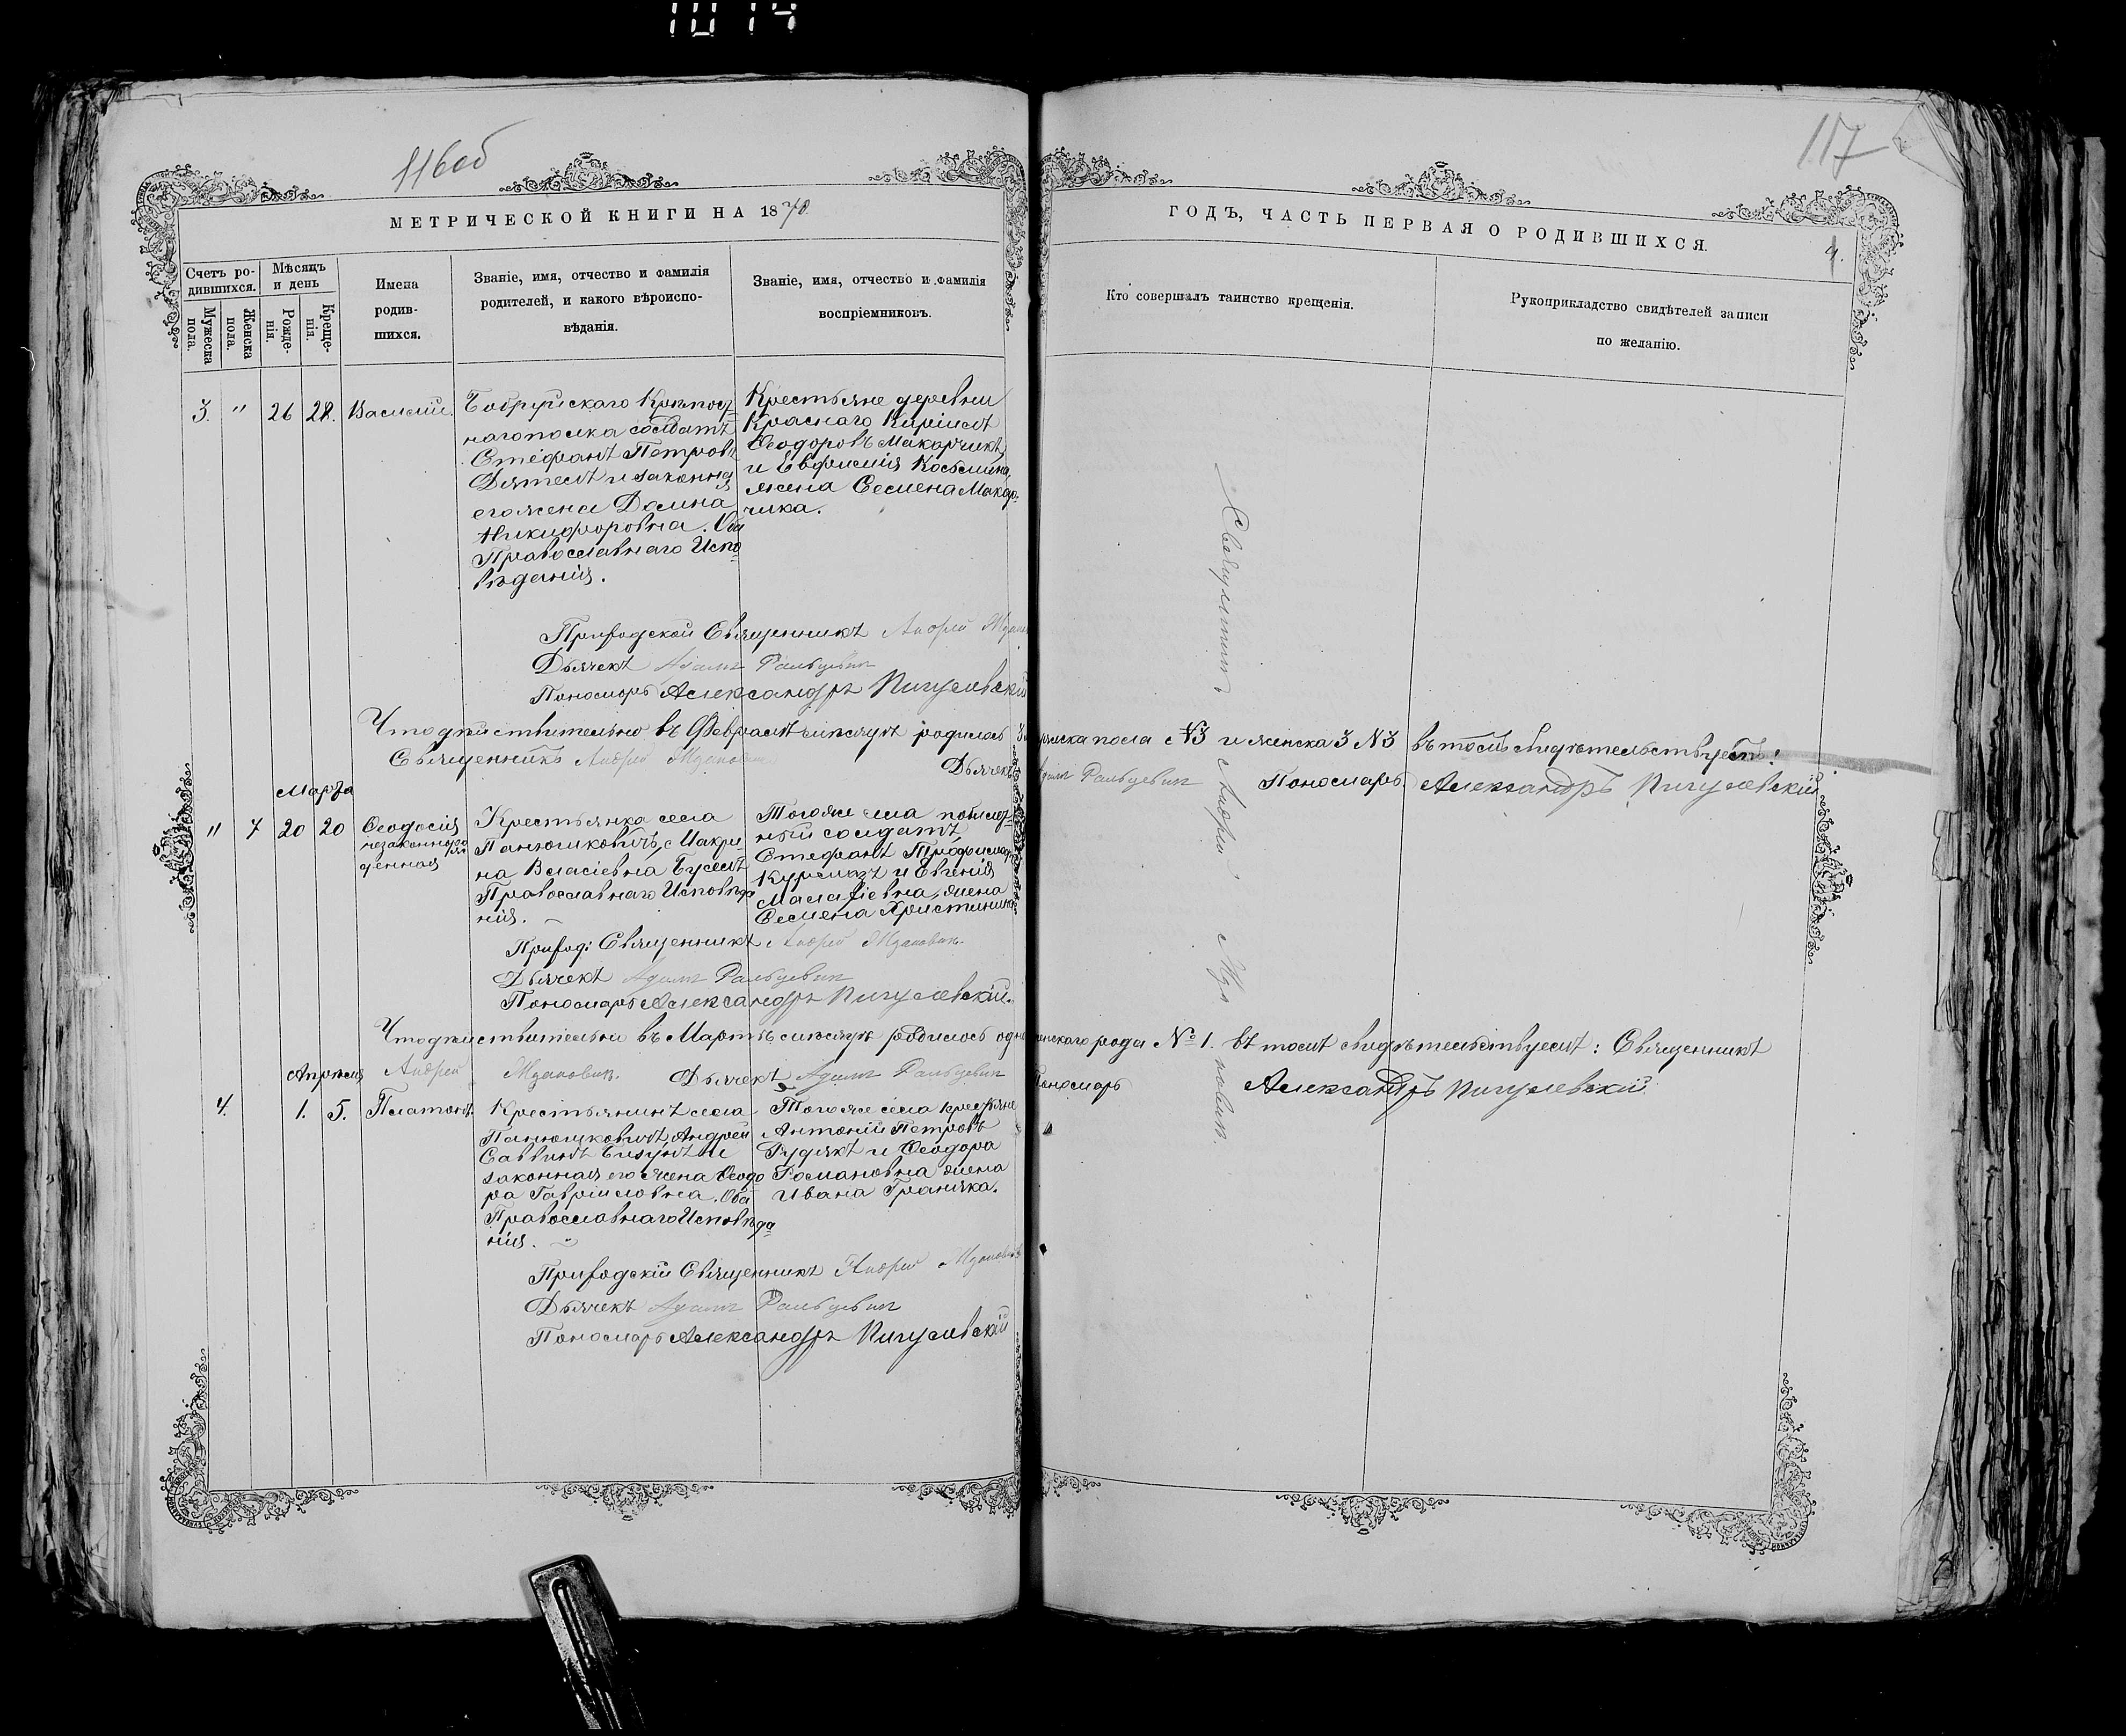 1014
116 об
117
МЕТРИЧЕСКОЙ КНИГИ НА 1870
ГОДЪ, ЧАСТЬ ПЕРВАЯ О РОДИВШИХСЯ.
4.
Счетъ ро-
дившихся.
Мужеска
пола.
Женска
пола.
Мѣсяцъ
и день
Рожде-
нія.
Креще-
нія.
Имена
родив-
шихся.
Званіе, имя, отчество и фамилія
родителей, и какого вѣроиспо-
вѣданія.
Званіе, имя, отчество и фамилія
воспріемниковъ.
Кто совершалъ таинство крещенія.
Рукоприкладство свидѣтелей записи
по желанію.
3. " 26 28. Василій.
Бобруйскаго Крѣпост-
наго полка солдатъ
Стефанъ Петровъ
Дятелъ и законная
его жена Домна
Никифоровна. Оба
Православнаго Испо-
вѣданія.
Крестьяне деревни
Краснаго Кирилъ
Ѳеодоровъ Макарчикъ,
и Евфимія Косьмина,
жена Семена Макар-
чика.
Приходской Священникъ Андрей
Дьячекъ Адамъ Ральцевич
Пономарь Александръ Пигулевскій
Что дѣйствительно въ Февралѣ мѣсяцѣ родилось 3 мужеска пола №3 и женска 3 №3 въ томъ свидѣтельствуемъ:
Священникъ Андрей Дьячекъ Адамъ Ральцевич Пономарь Александръ Пигулевскій
Марта
" 4 20 20 Ѳеодосія
незаконнорож
денная
Крестьянка села
Панюшковичъ, Макри-
на Власіевна Буселъ
Православнаго Исповѣда
нія.
Того же села
солдатъ
Стефанъ
и Евгенія
жена
Семена
Приход: Священникъ Андрей
Дьячекъ Адамъ Ральцевич
Пономарь Александръ Пигулевскій.
Что дѣйствительно въ Мартѣ мѣсяцѣ родилось одно женскаго рода №1. въ томъ свидѣтельствуемъ: Священникъ
Андрей Дьячекъ Адамъ Ральцевич Пономарь Александръ Пигулевскій
Апрѣля
4. 1. 5. Платонъ.
Крестьянинъ села
Панюшковичъ Андрей
Саввинъ и
законная его жена Ѳеодо
ра Гавріиловна. Оба
Православнаго Исповѣда
нія.
Того же села крестьяне
Антоній Петровъ
Рудякъ и Ѳеодора
Романовна жена
Ивана Граняка.
Приходскій Священникъ Андрей
Дьячекъ Адамъ Ральцевич
Пономарь Александръ Пигулевскій
Священникъ Андрей